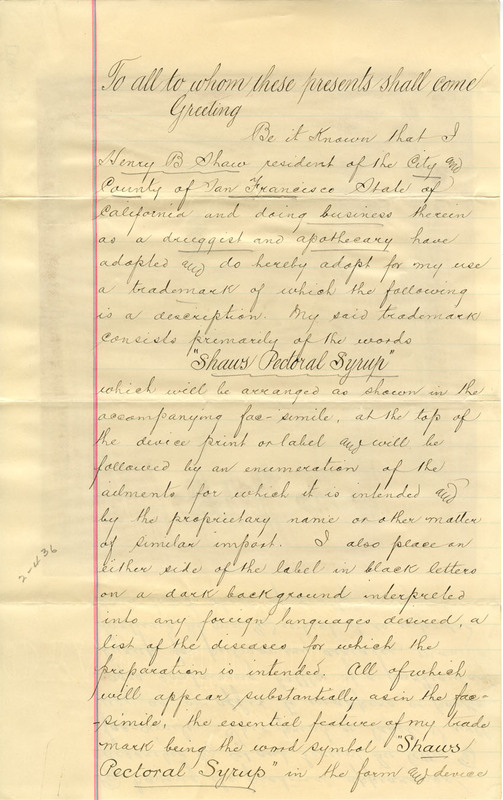 To all to whom these presents shall come
Greeting
Be it Known that I
Henry B Shaw resident of the City and
County of San Francisco State of
California and doing business therein
as a druggist and apothecary have
adopted and do hereby adopt for my use
a trademark of which the following
is a description. My said trademark
consists primarely of the words
"Shaws Pectoral Syrup"
which will be arranged as shown in the
accompanying fac-simile, at the top of
the device print or label and will be
followed by an enumeration of the
ailments for which it is intended and
by the proprietary name or other matter
of similar import. I also place on
either side of the label in black letters
on a dark background interpreted
into any foreign languages desired, a
list of the diseases for which the
preparation is intended. All of which
will appear substantially as in the fac-
-simile, the essential feature of my trade
mark being the word symbol "Shaws
Pectoral Syrup" in the form and device
2-436